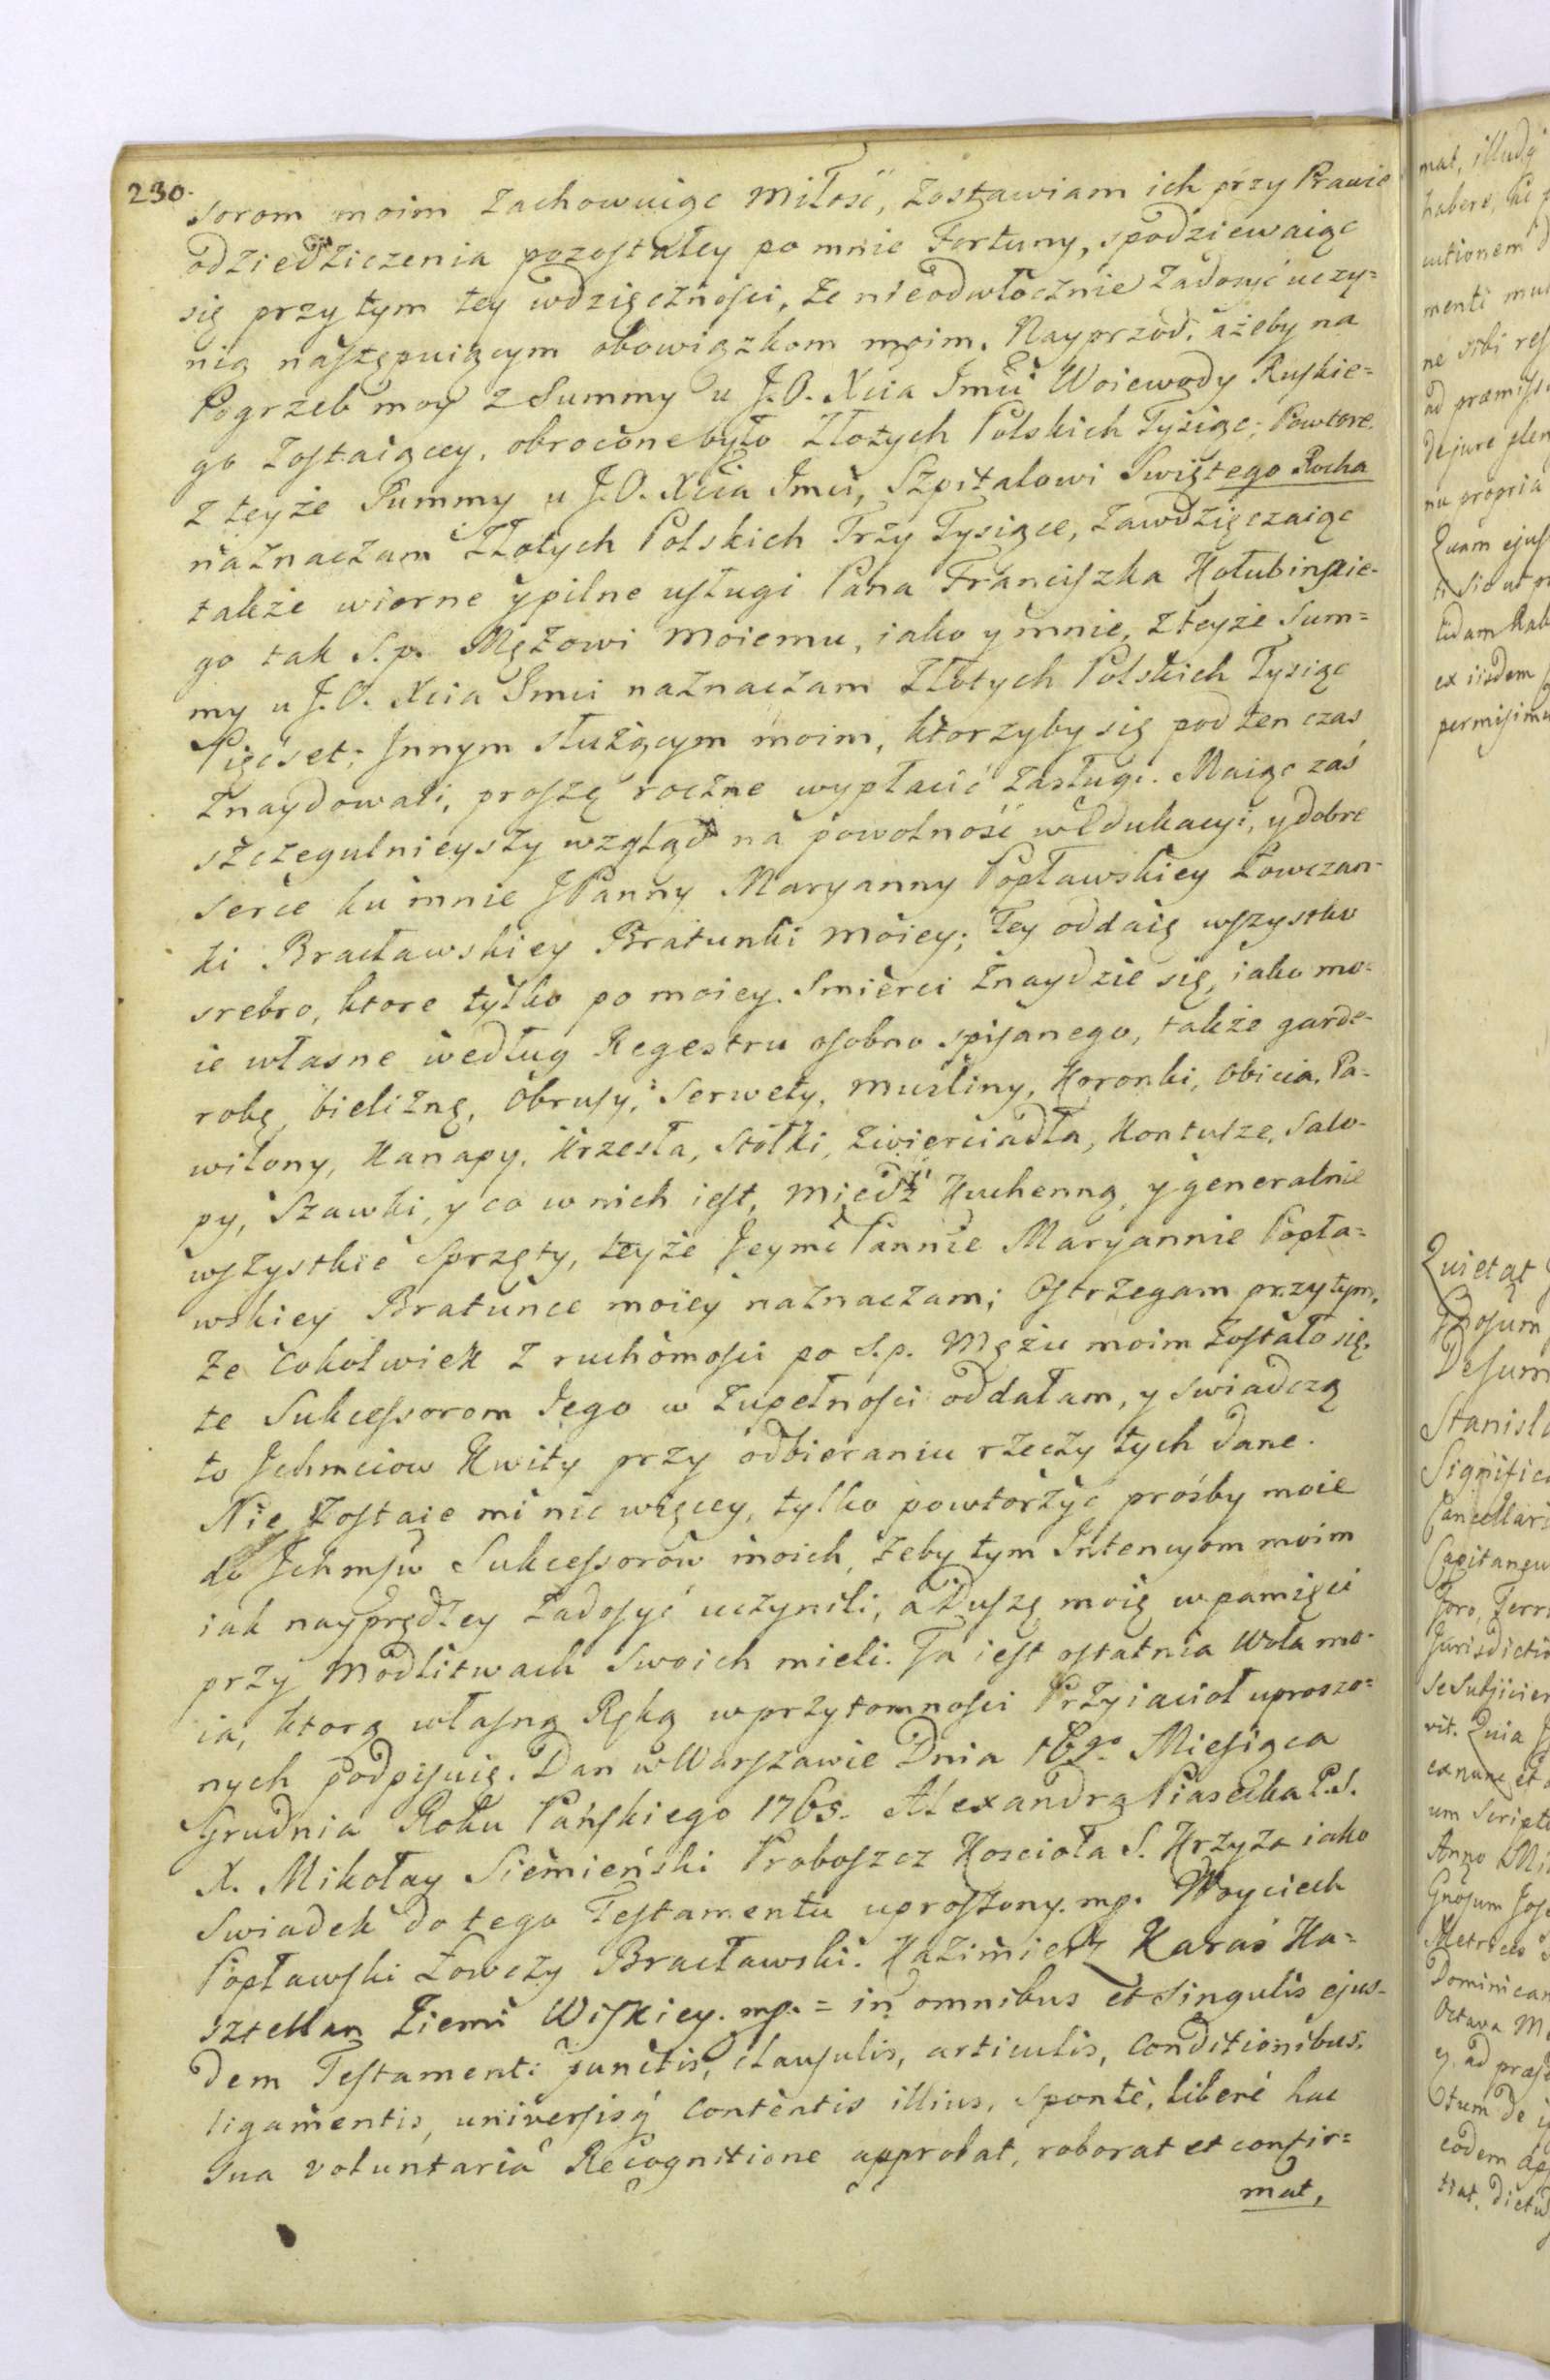 230.
sorom moim zachowuiąc miłość, zostawiam ich przy Prawie
odziedziczenia pozostałey po mnie Fortuny, spodziewaiąc
się przytym tey wdzięczności, że nieodwłocznie zadosyć uczy=
nią następuiącym obowiązkom moim. Nayprzód, ażeby na
Pogrzeb moy z Summy u J.O. Xcia Jmci Woiewody Ruskie=
go zostaiącey, obrocone było Złotych Polskich Tysiąc; Powtore.
z teyże Summy u J.O. Xcia Jmci, Szpitalowi Swiętego Rocha
naznaczam Złotych Polskich Trzy Tysiące, zawdzięczaiąc
także wierne y pilne usługi Pana Franciszka Hołubinskie-
go tak S.p. Mężowi moiemu, iako y mnie, z teyże Sum=
my u J.O. Xcia Jmci naznaczam Złotych Polskich Tysiąc
Pięćset; Innym służącym moim, ktorzyby się pod ten czas
znaydowali, proszę roczne wypłacić zasługi. Maiąc zaś
szczegulnieyszy wzgląd na powolność w Edukacyi, y dobre
serce ku mnie JPanny Maryanny Popławskiey Łowczan-
ki Bracławskiey Bratunki moiey; Tey oddaię wszystko
srebro, ktore tylko po moiey Smierci znaydzie się, iako mo=
ie własne według Regestru osobno spisanego, także garde-
robę, bieliznę, Obrusy, Serwety, musliny, Koronki, Obicia, Pa-
wilony, Kanapy, Krzesła, Stołki, Zwierciadła, Kontusze, Salo-
py, Szawki, y co w nich iest, Miedź Kuchenną, y generalnie
wszystkie Sprzęty, teyże Jeymć Pannie Maryannie Popła=
wskiey Bratunce moiey naznaczam; Ostrzegam przytym,
że cokolwiek z ruchomości po S.p. Mężu moim zostało się,
te Sukcessorom Jego w zupełności oddałam, y swiadczą
to Jchmciow Kwity przy odbieraniu rzeczy tych dane.
Nie zostaie mi nic więcey, tylko powtorzyć prośby moie
do Jchmsw Sukcessorow moich, żeby tym Intencyom moim
iak nayprędzey zadosyć uczynili, a Duszę moię w pamięci
przy Modlitwach Swoich mieli. Ta iest ostatnia Wola mo-
ia, ktorą własną Ręką w przytomności Przyiacioł uproszo=
nych podpisuię. Dan w Warszawie Dnia 16go Miesiąca
Grudnia Roku Pańskiego 1765. Alexandra Piasecka P.S.
X. Mikołay Siemieński Proboszcz Koscioła S. Krzyża iako
Swiadek do tego Testamentu uproszony. mp. Woyciech
Popławski Łowczy Bracławski. Kazimierz Karaś Ka=
sztellan Ziemi Wiskiey. mp. = in omnibus et singulis ejus-
dem Testamenti punctis, clausulis, articulis, Conditionibus,
ligamentis, universisq contentis illius, sponte, libere hac
sua voluntaria Recognitione approbat, roborat et confir=
mat,
mat, illudq
habere,
menti
ne sibi
ad præmiss
de jure
nu propria
Quam ejus
ex iisdem
Quietat
Stanisl
Cancellari
Foro, Terr
Jurisdictio
se subjicien
vit. Quia
ex nunc et
um Scripto
Metrices
Dominican
Octava
tum de
eodem